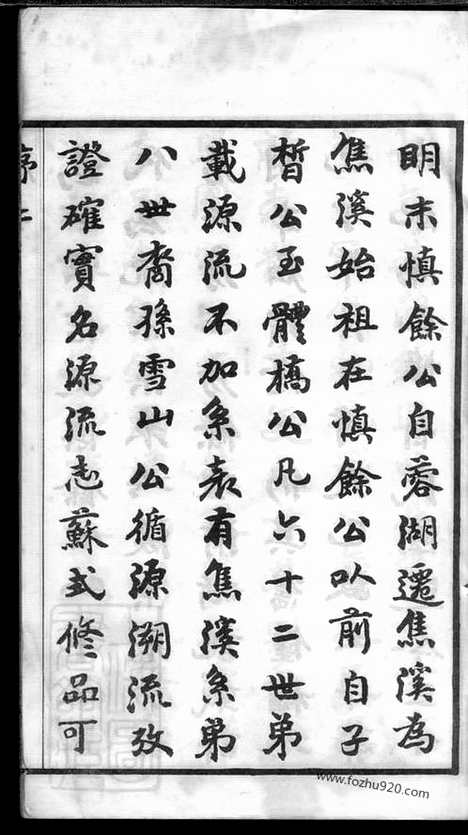 明末慎餘公自蓉湖遷焦溪為
焦溪始祖在慎餘公以前自子
晳公至體橋公凡六十二世弟
載源流不加系表有焦溪系弟
八世裔孫雪山公循源溯流攷
證確實名源流志蘇式修品可
序 二
www.fozhu920.com